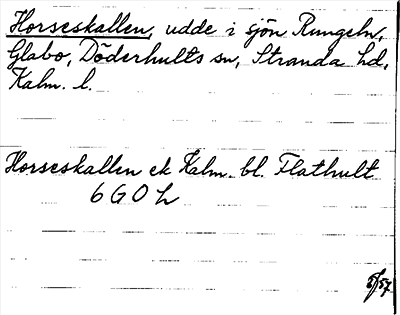 Horseskallen, udde i sjön Rungeln,
Glabo, Döderhults sn, Stranda hd,
Kalm. l.
Horseskallen ek Kalm. bl. Flathult
6 G 0 h